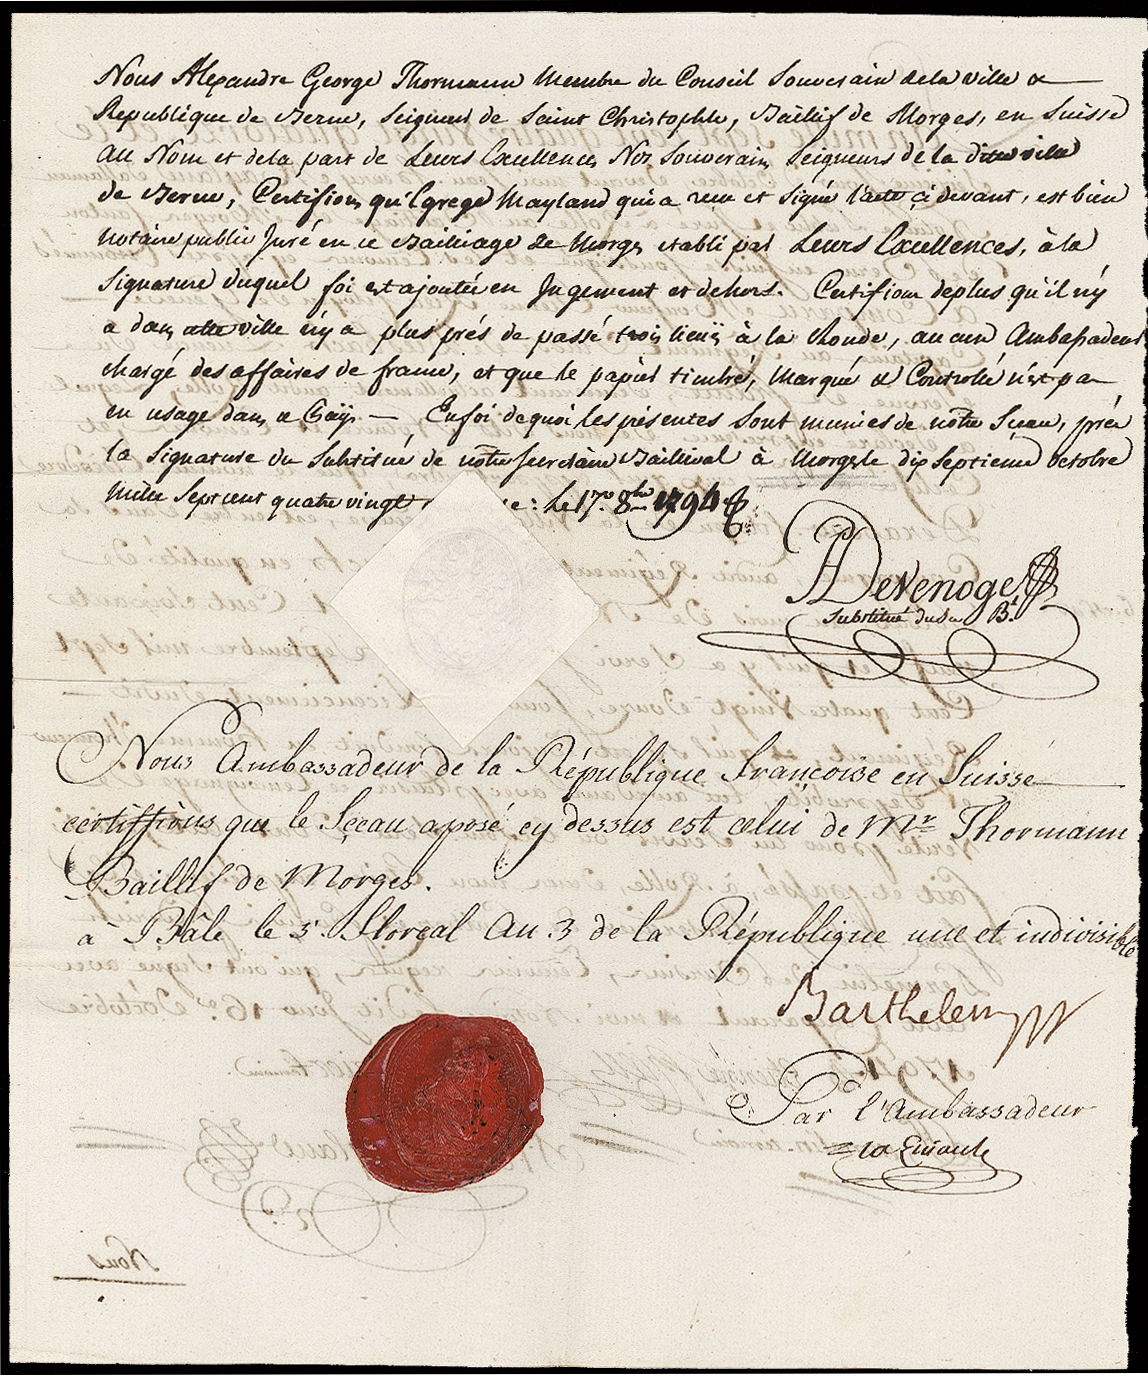 Nous Alexandre George Thormann Membre du Conseil Souverain de la ville &
Republique de Berne, Seigneur de Saint Christophle, Baillif de Morges, en Suisse
au Nom et de la part de Leurs Excellences Nos Souverains Seigneurs de la dite ville
de Berne, Certifions qu'Egrege Mayland qui a reçu et signé l'acte çi devant, est bien
notaire public Juré en ce Bailliage de Morges etabli par Leurs Excellences, à la
signature duquel foi est ajoutée en Jugement et dehors. Certifions deplus qu'il n'y
a dans cette ville n'y a plus prés de passé trois lieuës à la Ronde, aucun Ambassadeur,
chargé des affaires de france, et que le papier timbré, marqué & Controllé n'est pas
en usage dans ce Païs — En foi de quoi les présentes sont munies de notre Sceau, près
la signature du Substitué de notre Secretaire Baillival à Morges le dix Septieme octobre
mille Sept cent quatre vingt : le 17. 8bre 1794
ADevenoge
Substitué du Se Bl
Nous Ambassadeur de la République Françoise en Suisse
certiffions que le Sçeau aposé cy dessus est celui de Mr Thormann
Baillif de Morges.
à Bâle le 5. Floreal An 3 de la République une et indivisible
Barthelemy
Par l'Ambassadeur
Nous